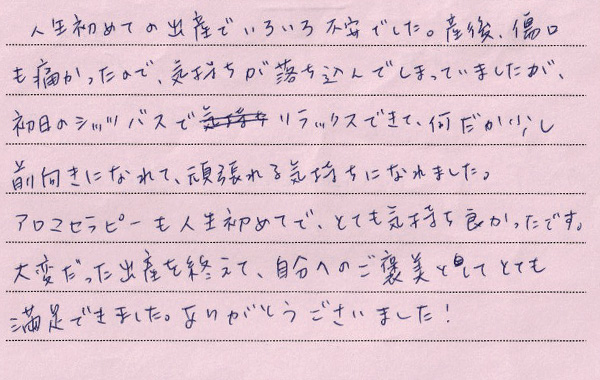 人生初めての出産でいろいろ不安でした。産後、傷口
も痛かったので、気持ちが落ち込んでしまっていましたが、
初日のシッツバスで気持ちリラックスできて、何だか少し
前向きになれて、頑張れる気持ちになれました。
アロマセラピーも人生初めてで、とても気持ち良かったです。
大変だった出産を終えて、自分へのご褒美としてとても
満足できました。ありがとうございました！